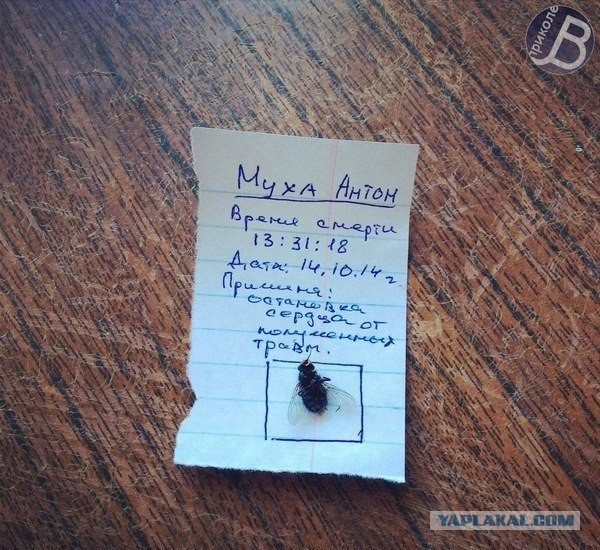 В приколе
Муха Антон
Время смерти
13:31:18
Дата: 14.10.14г
Причина:
остановка
сердца от
полученных
травм.
YAPLAKAL.COM